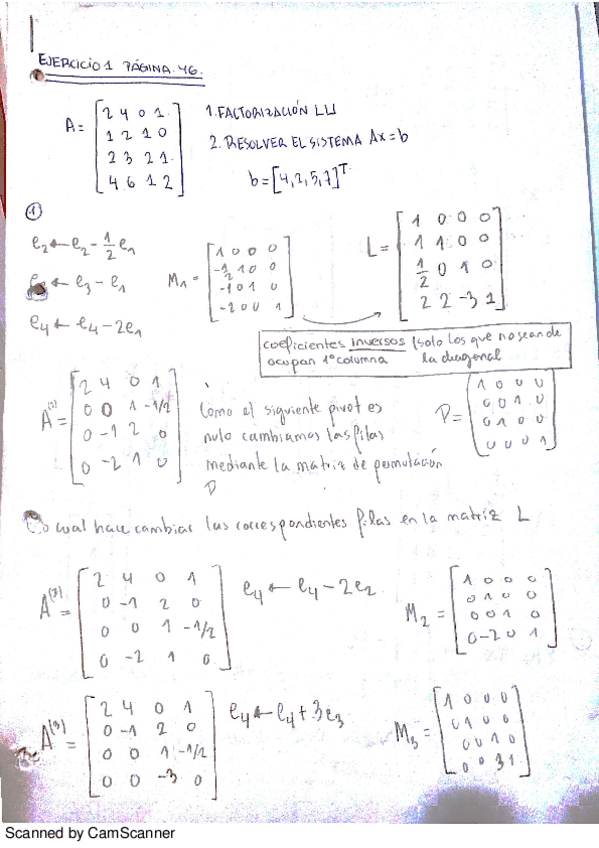 EJERCICIO 1 PÁGINA 46.
A = [2 4 0 1
1 2 1 0
2 3 2 1
4 6 1 2]
1. FACTORIZACIÓN LU
2. RESOLVER EL SISTEMA Ax=b
b=[4,2,5,7]^T
①
e2 ← e2 - 1/2 e1
← e3 - e1
e4 ← e4 - 2e1
M1 = [1 0 0 0
-1/2 1 0 0
-1 0 1 0
-2 0 0 1]
L = [1 0 0 0
1 1 0 0
1/2 0 1 0
2 2 -3 1]
coeficientes inversos (solo los que no sean de
ocupan 1º columna la diagonal
A = [2 4 0 1
0 0 1 -1/2
0 -1 2 0
0 -2 1 0]
Como el siguiente pivot es
nulo cambiamos las filas
mediante la matriz de permutación
P
P = [1 0 0 0
0 0 1 0
0 1 0 0
0 0 0 1]
Lo cual hace cambiar las correspondientes filas en la matriz L
A = [2 4 0 1
0 -1 2 0
0 0 1 -1/2
0 -2 1 0]
e4 ← e4 - 2e2
M2 = [1 0 0 0
0 1 0 0
0 0 1 0
0 -2 0 1]
A^(3) = [2 4 0 1
0 -1 2 0
0 0 1 -1/2
0 0 -3 0]
e4 ← e4 + 3e3
M3 = [1 0 0 0
0 1 0 0
0 0 1 0
0 0 3 1]
Scanned by CamScanner